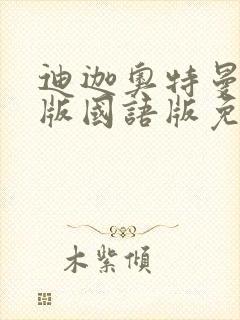 迪迦奥特曼
版國語版免
木紫傾